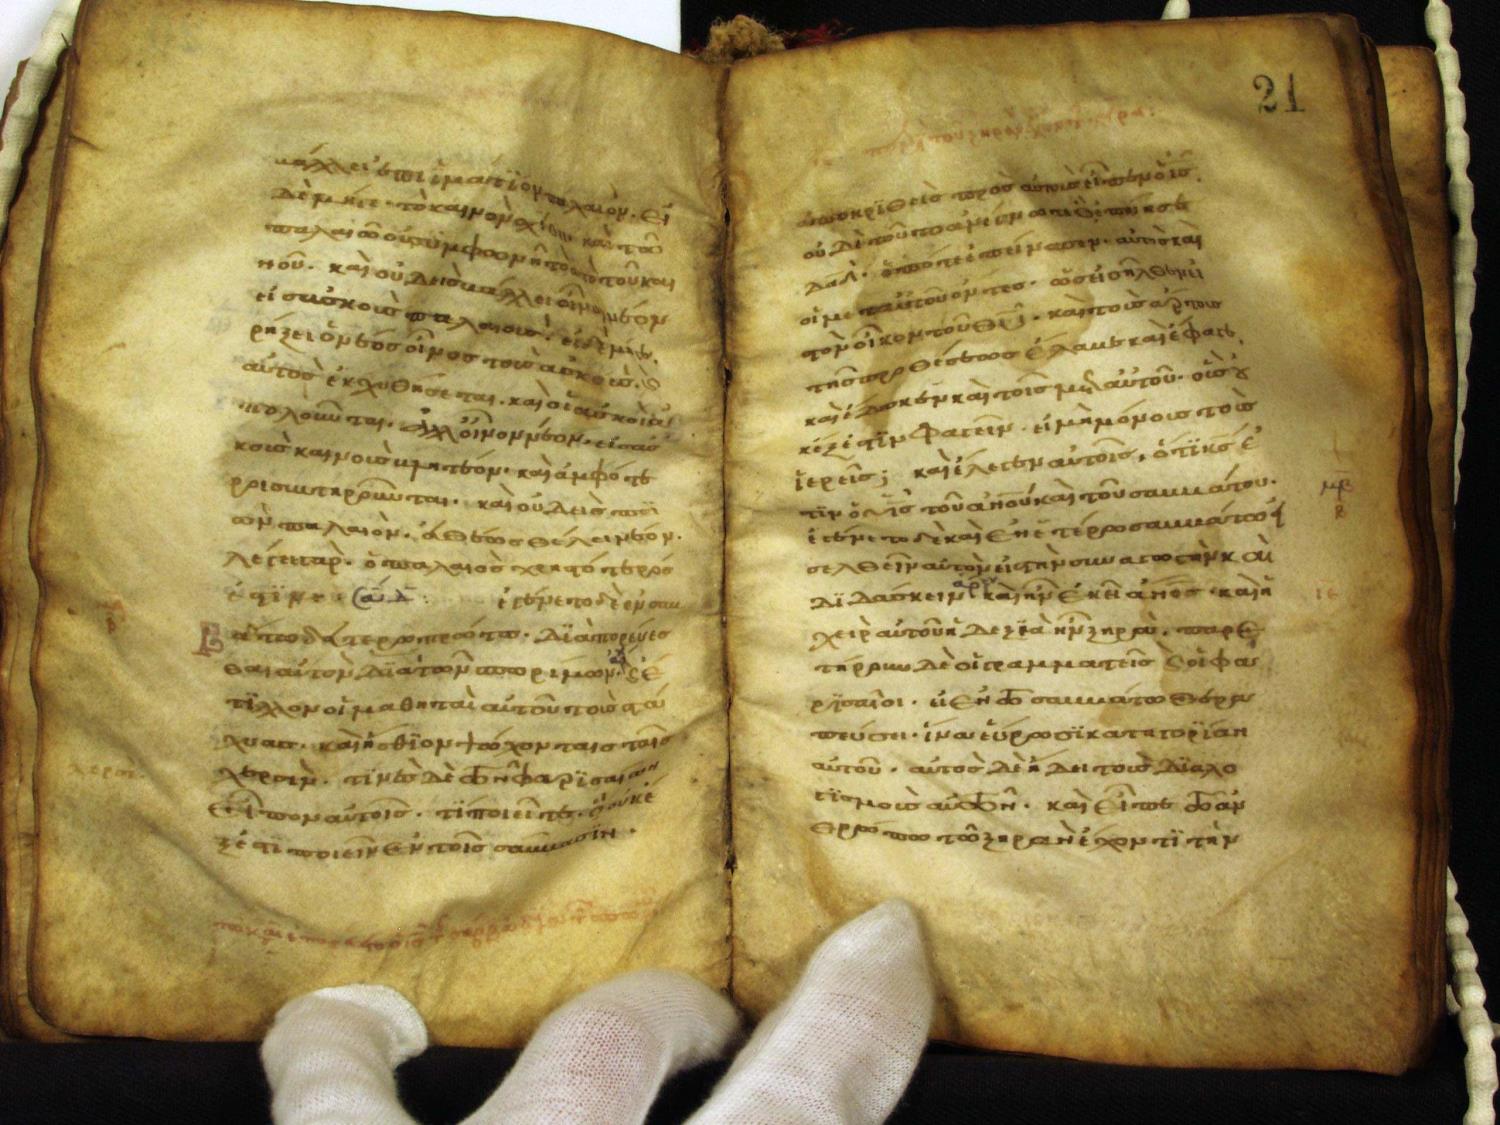 βάλλει ἐπὶ ἱμάτιον παλαιόν. εἰ
δὲ μήγε. τὸ καινὸν σχίζει καὶ τῶ
παλαιῶ οὐ συμφωνῆ τὸ ἀπὸ τοῦ και
νοῦ. καὶ οὐδεὶς βάλλει οἶνον νέον
εἰς ἀσκοὺς παλαιοὺς. εἰ δὲ μήγε.
ῥήξει ὁ νέος οἶνος τοὺς ἀσκοὺς. καὶ
αὐτὸς ἐκχυθήσεται. καὶ οἱ ἀσκοὶ ἀ
πολοῦνται. ἀλλ οἶνον νέον. εἰς ἀσ
κοὺς καινοὺς βλητέον. καὶ ἀμφότε
ροι συντηροῦνται. καὶ οὐδεὶς πι
ὼν παλαιὸν. εὐθέως θέλει νέον.
λέγει γὰρ. ὁ παλαιὸς χρηστότερός
ἐστιν. ἐγένετο δὲ ἐν σαβ
βάτω δευτεροπρώτω. διαπορεύεσ
θαι αὐτὸν διὰ τῶν σπορίμων. καὶ ἔ
τιλλον οἱ μαθηταὶ αὐτοῦ τοὺς στά
χυας. καὶ ἤσθιον ψώχοντες ταῖς
χερσίν. τινὲς δὲ τῶν φαρισαίων
εἶπον αὐτοῖς. τί ποιεῖτε. ὃ οὐκ ἔ
ξεστι ποιεῖν ἐν τοῖς σάββασιν.
21
ἀποκριθεὶς πρὸς αὐτοὺς εἶπεν ὁ ις.
οὐδὲ τοῦτο ἀνέγνωτε ὃ ἐποίησε
δαδ. ὁπότε ἐπείνασεν. αὐτὸς καὶ
οἱ μετ αὐτοῦ ὄντες. ὡς εἰσῆλθεν εἰ
τὸν οἶκον τοῦ θυ. καὶ τοὺς ἄρτους
τῆς προθέσεως ἔλαβε καὶ ἔφαγε.
καὶ ἔδωκεν καὶ τοῖς μετ αὐτοῦ. οὓς οὐ
κ ἔξεστιν φαγεῖν. εἰ μὴ μόνους τοὺς
ἱερεῖς; καὶ ἔλεγεν αὐτοῖς, ὅτι κς ἐ
στιν ὁ υἱς τοῦ ανου καὶ τοῦ σαββάτου.
ἐγένετο δὲ καὶ ἐν ἑτέρω σαββάτω εἰ
σελθεῖν αὐτὸν εἰς τὴν συναγωγὴν καὶ
διδάσκειν. καὶ ἦν ἐκεῖ ανος. καὶ ἡ
χεὶρ αὐτοῦ ἡ δεξιὰ ἦν ξηρά. παρε
τήρουν δὲ οἱ γραμματεῖς καὶ οἱ φα
ρισαῖοι. εἰ ἐν τῶ σαββάτω θερα
πεύσει. ἵνα εὕρωσι κατηγορίαν
αὐτοῦ. αὐτὸς δὲ ἤδει τοὺς διαλο
γισμοὺς αὐτῶν. καὶ εἶπε τῶ ἀν
θρώπω τῶ ξηρὰν ἔχοντι τὴν